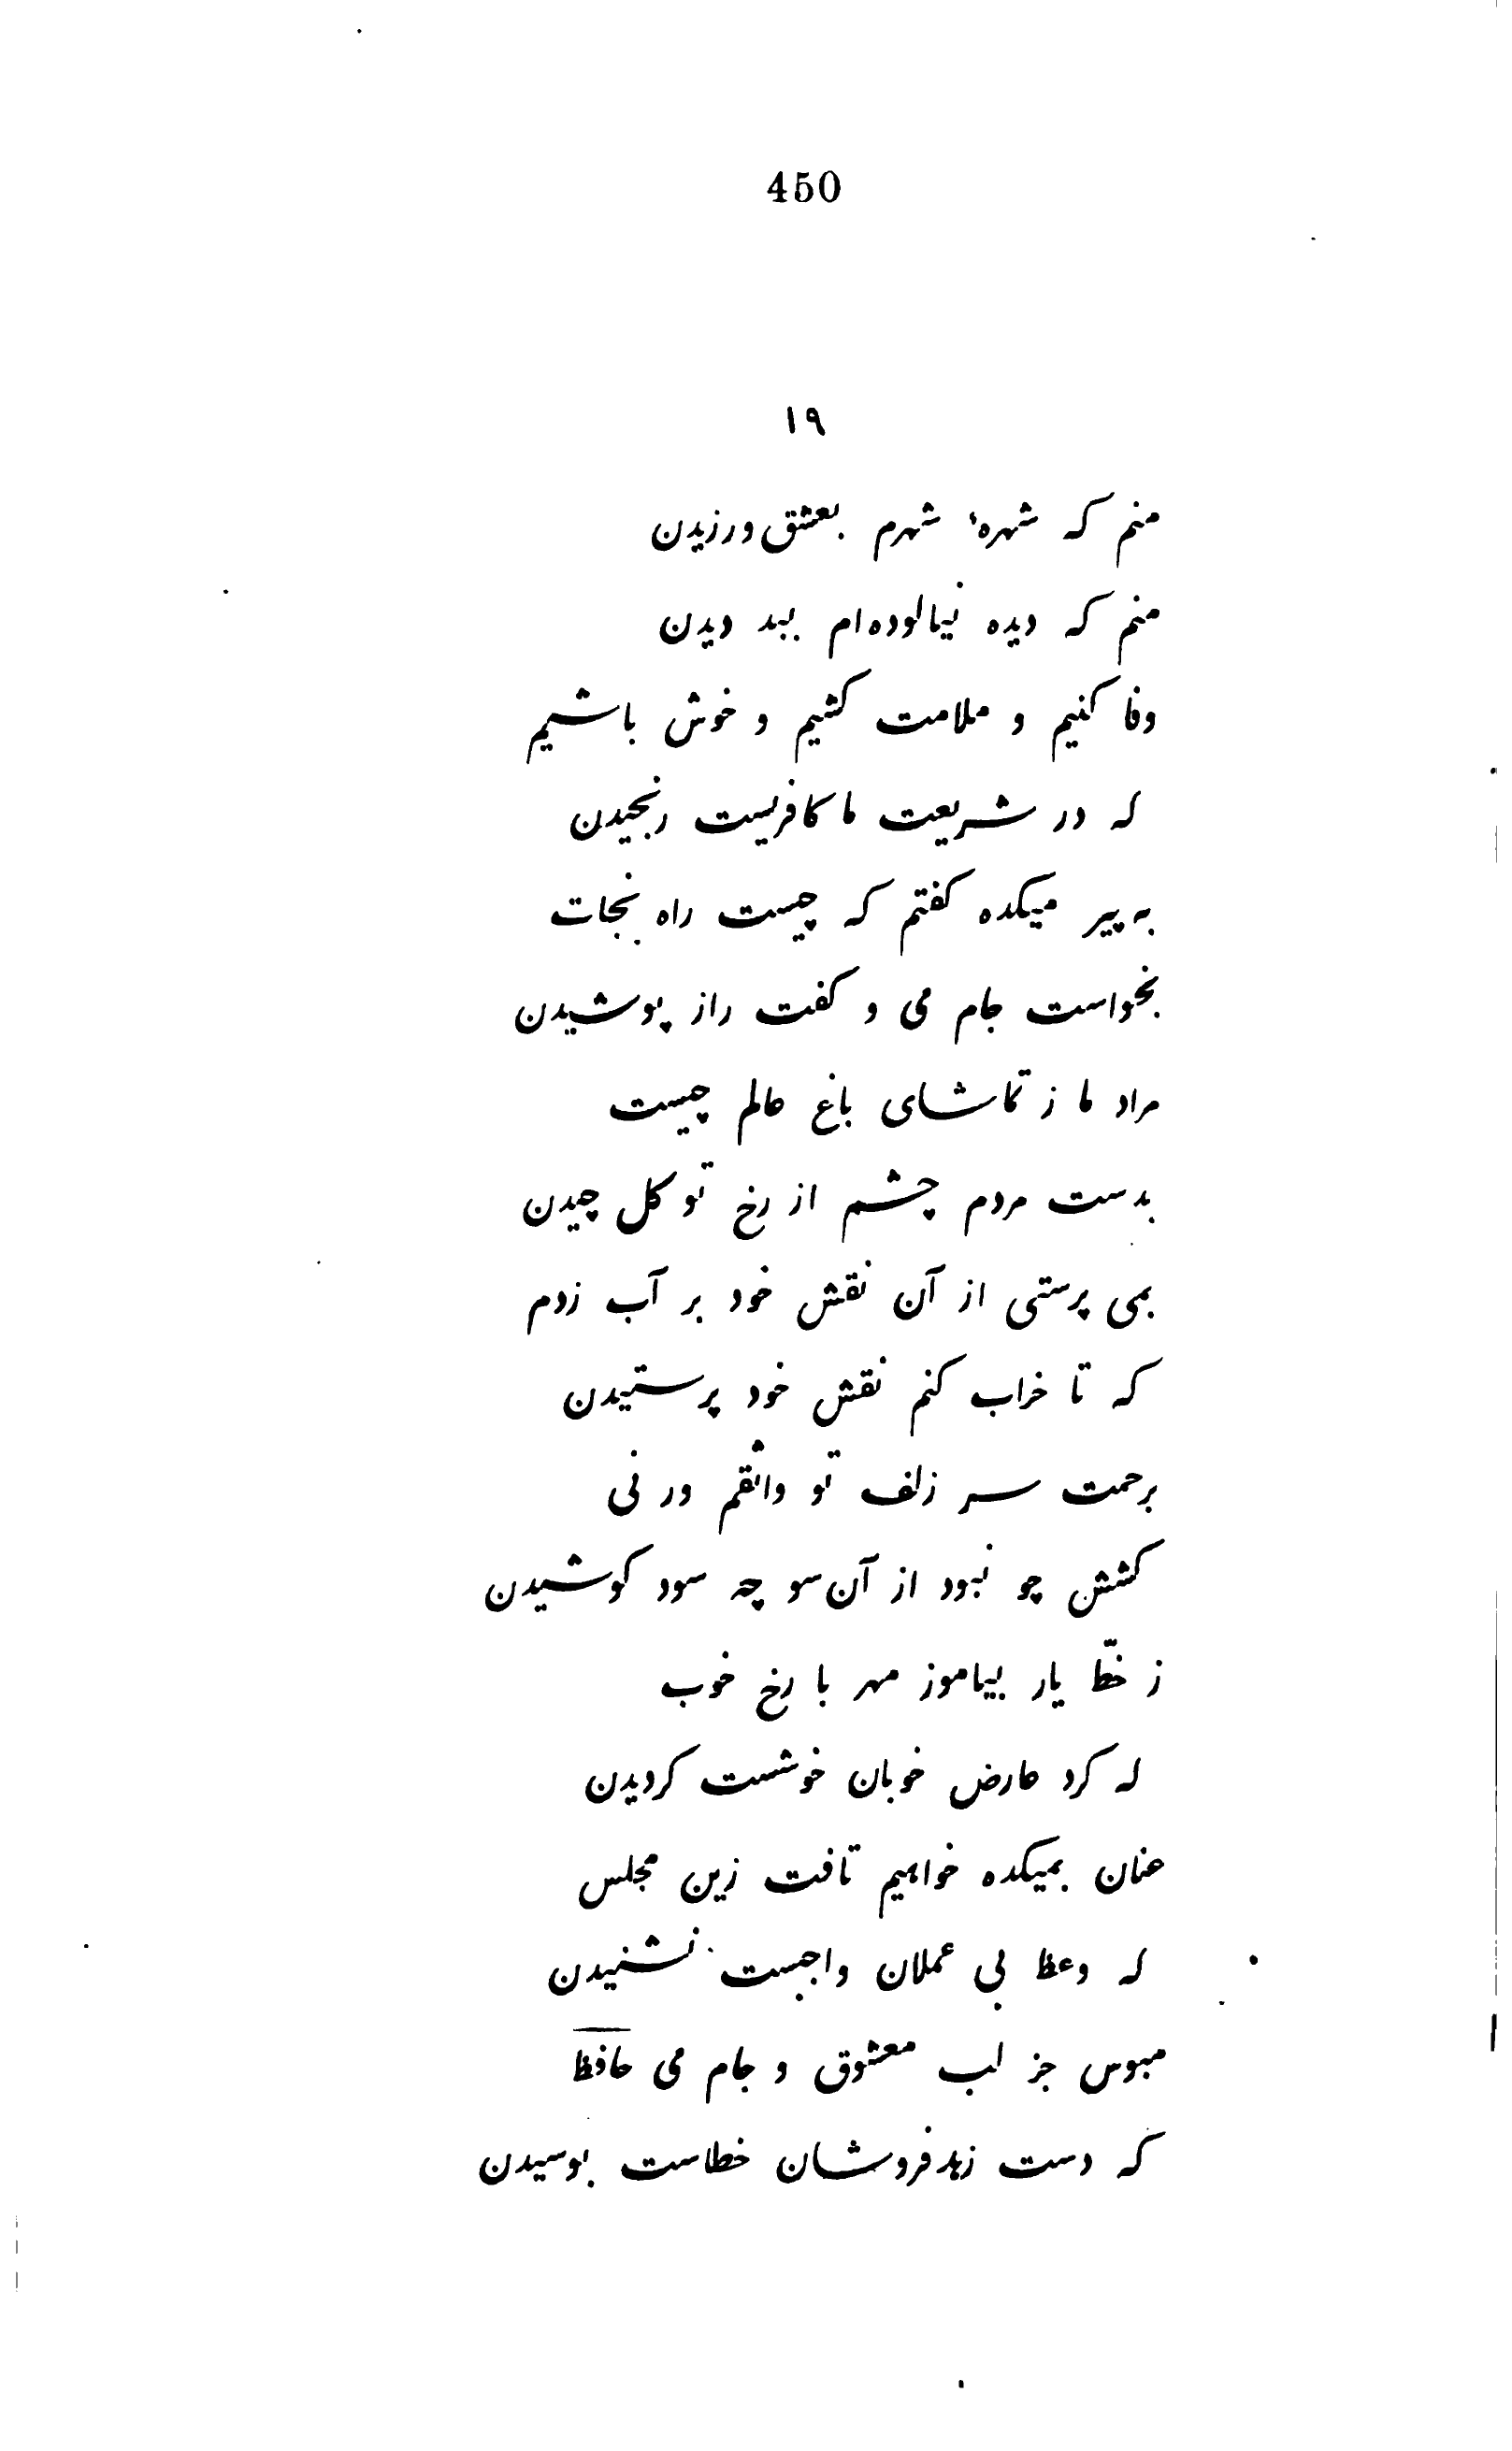 450
١٩
منم که شهرهٔ شهرم بعشق ورزیدن
منم که دیده نیالوده‌ام ببد دیدن
وفا کنیم و ملامت کشیم و خوش باشیم
که در شریعت ما کافریست رنجیدن
به پیر میکده کفتم که چیست راه نجات
بخواست جام می و کفت راز پوشیدن
مراد ما ز تماشای باغ عالم چیست
بدست مردم چشم از رخ تو کل چیدن
بمی پرستی از آن نقش خود بر آب زدم
که تا خراب کنم نقش خود پرستیدن
برحمت سر زلف تو واثقم ور نی
کشش چو نبود از آن سو چه سود کوشیدن
ز خطّ یار بیاموز مهر با رخ خوب
که کرد عارض خوبان خوشست کردیدن
عنان بمیکده خواهیم تافت زین مجلس
که وعظ بی عملان واجبست نشنیدن
مبوس جز لب معشوق و جام می حافظ
که دست زهدفروشان خطاست بوسیدن